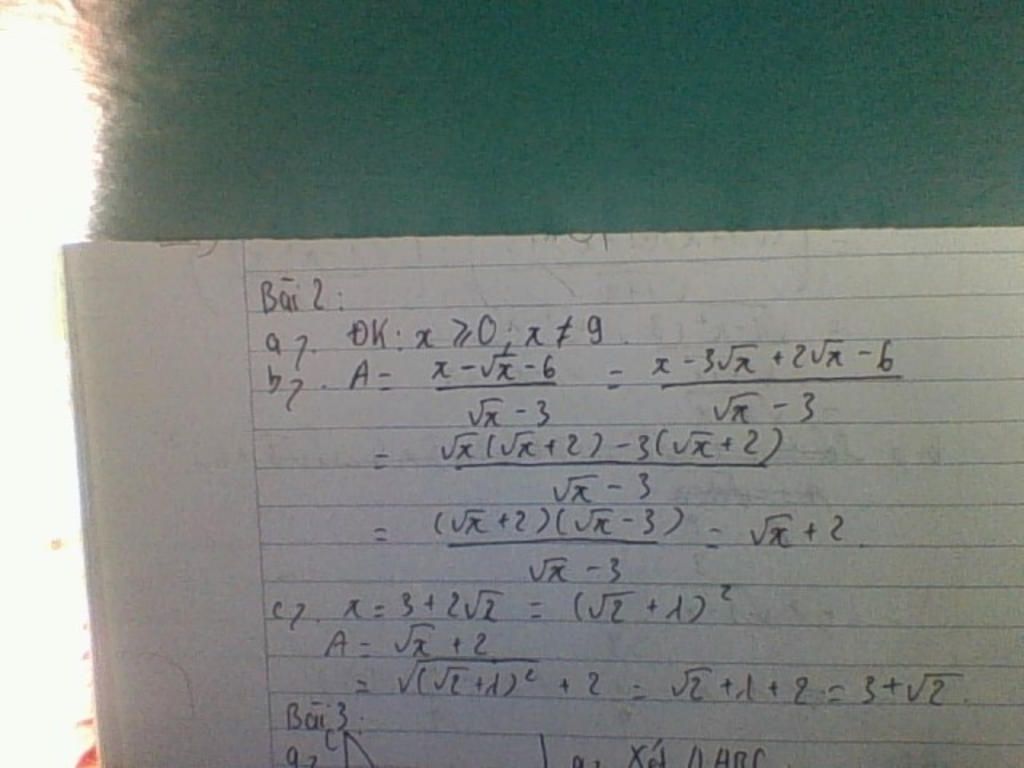 Bài 2:
a). ĐK: x ≥ 0; x ≠ 9.
b). A = (x - √x - 6)/(√x - 3) = (x - 3√x + 2√x - 6)/(√x - 3)
= (√x(√x + 2) - 3(√x + 2))/(√x - 3)
= ((√x + 2)(√x - 3))/(√x - 3) = √x + 2.
c). x = 3 + 2√2 = (√2 + 1)².
A = √x + 2
= √((√2 + 1)²) + 2 = √2 + 1 + 2 = 3 + √2.
Bài 3:
a) C a) Xét ΔABC